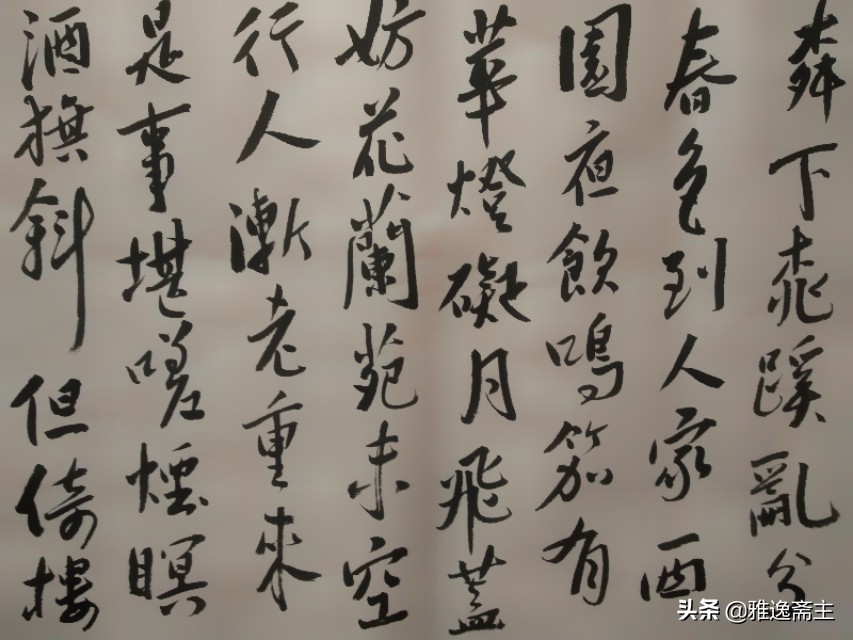 柳下桃蹊亂分
春色到人家西
園夜飲鳴笳有
華燈礙月飛蓋
妨花蘭苑未空
行人漸老重來
是事堪嗟煙暝
酒旗斜但倚樓
头条 @雅逸斋主